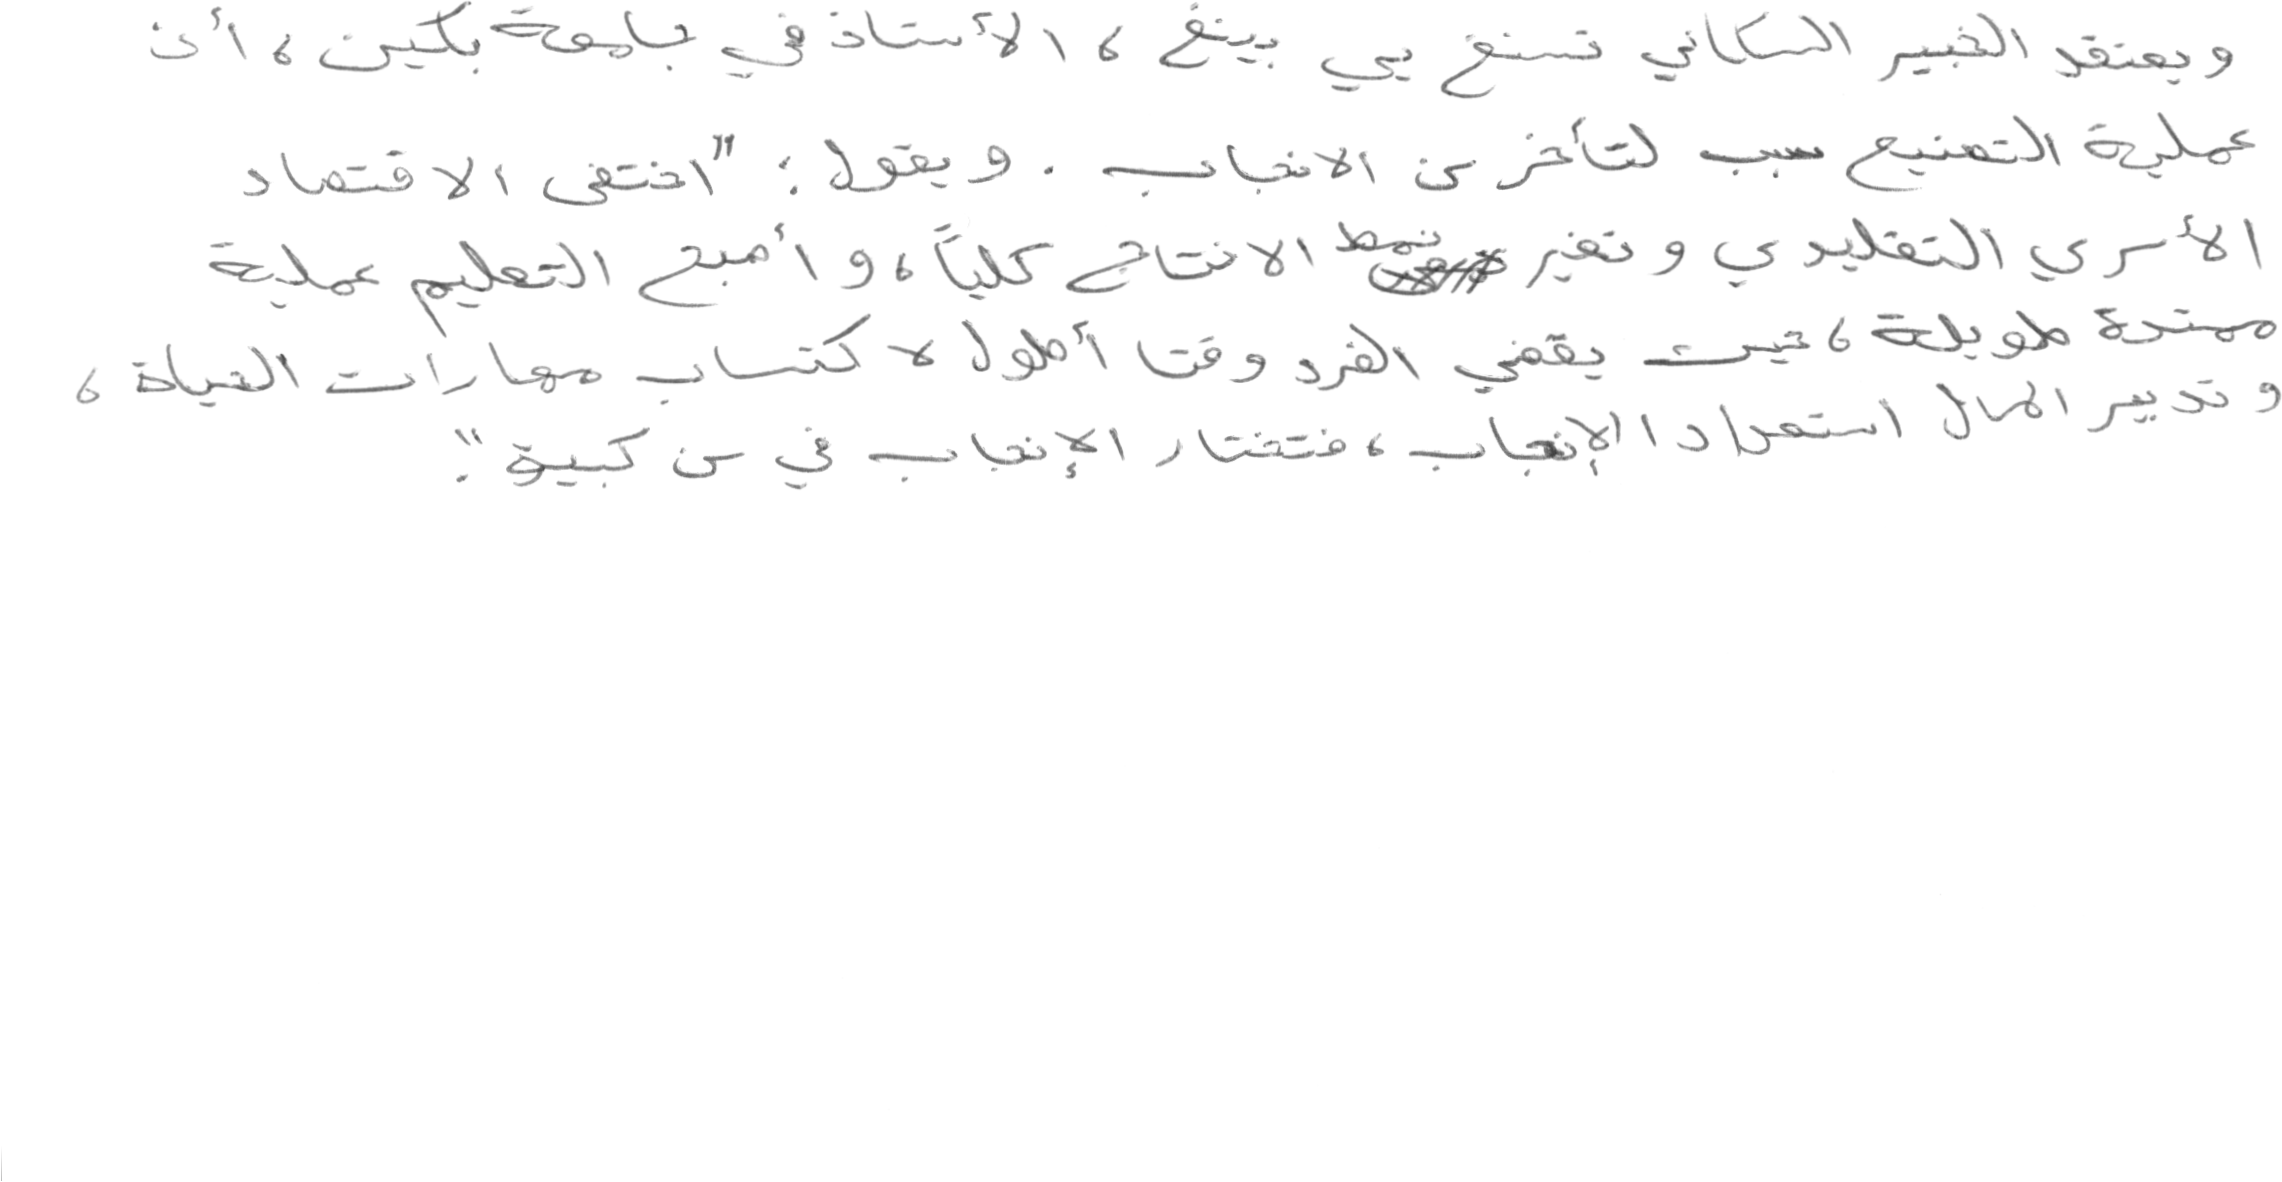 ويعتقد الخبير السكاني تسنغ يي بينغ، الأستاذ في جامعة بكين، أن
عملية التصنيع سبب لتأخر سن الانجاب. ويقول: "اختفى الاقتصاد
الأسري التقليدي وتغير نمط الانتاج كلياً، وأصبح التعليم عملية
ممتدة طويلة، حيث يقضي الفرد وقتا أطول لاكتساب مهارات الحياة،
وتدبير المال استعدادا الإنجاب، فتختار الإنجاب في سن كبيرة".